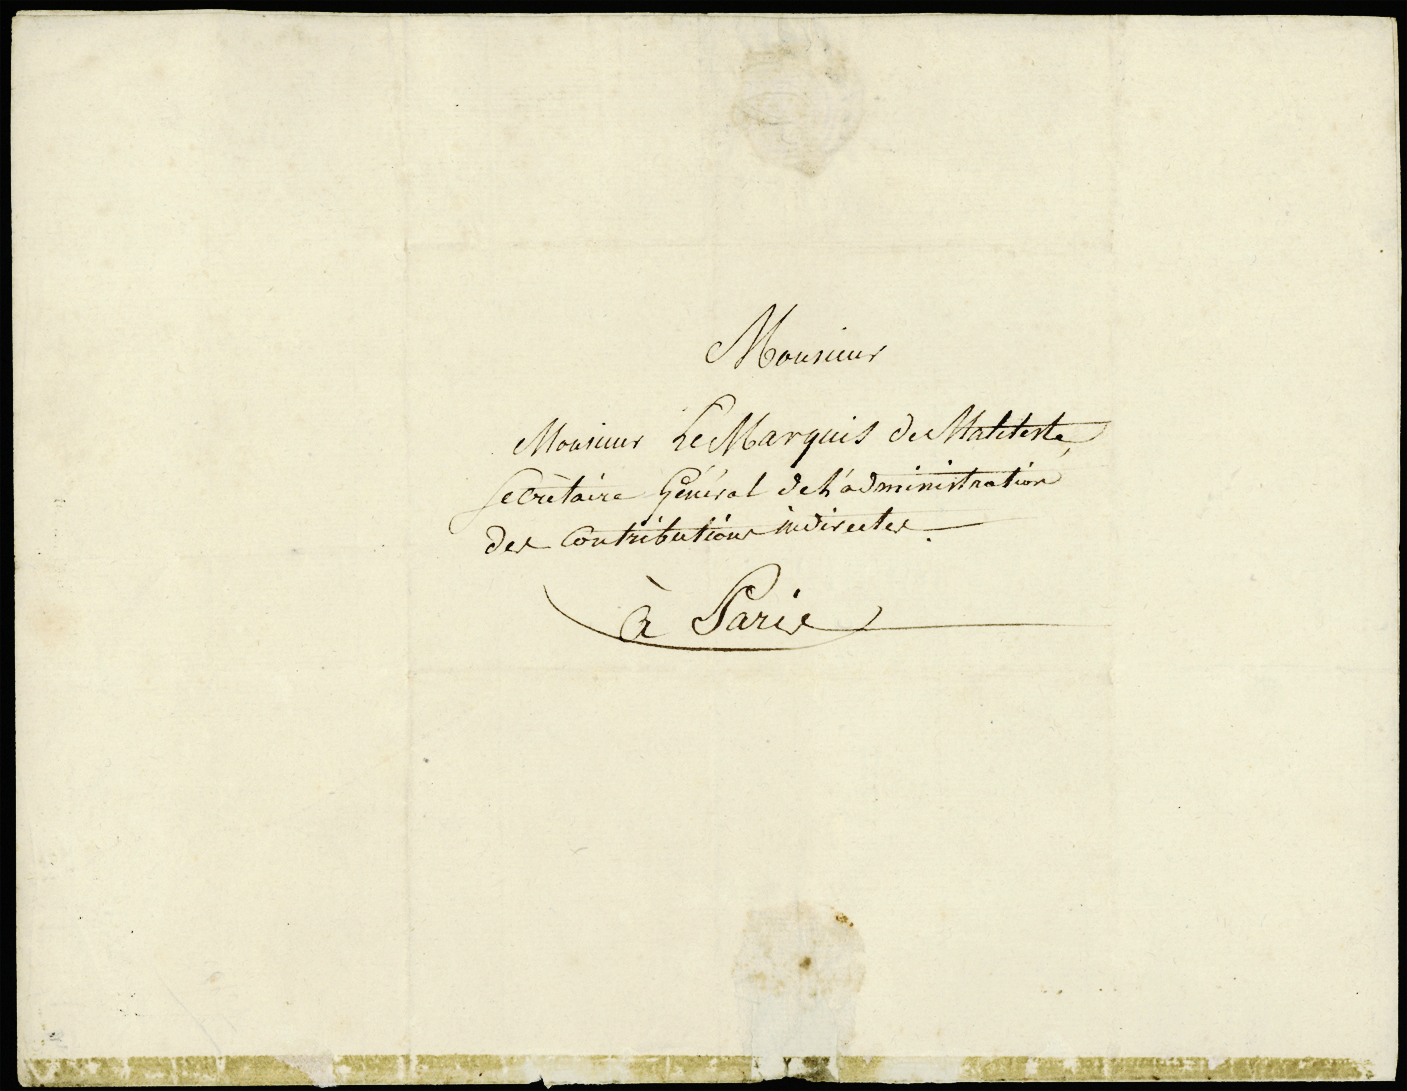 Monsieur
Monsieur Le Marquis de Maleteste,
Secrètaire Général de L'administration
des Contributions indirectes.
à Paris